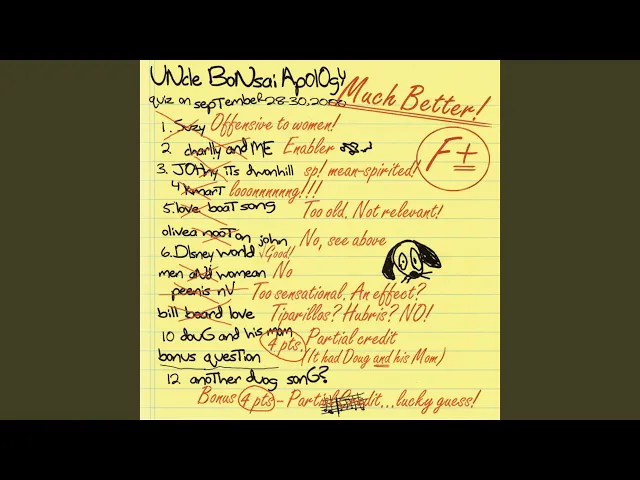 UNcle BoNsai ApolOgy
Much Better!
quiz on sepTember 28-30, 2000
F±
1. Suzy Offensive to women!
2 charlly and ME Enabler
3. JOHny iTs dwonhill sp! mean-spirited!
4 KmarT looonnnnnng!!!
5. love boaT song Too old. Not relevant!
olivea nooTon john No, see above
6. DIsney world √Good!
men aNd womean No
peenis nV Too sensational. An effect?
bill beard love Tiparillos? Hubris? NO!
10 douG and his mom 4 pts. Partial credit
bonus questIon (It had Doug and his Mom)
12 anoTher duog sonG?
Bonus 4 pts – Partial Credit...lucky guess!